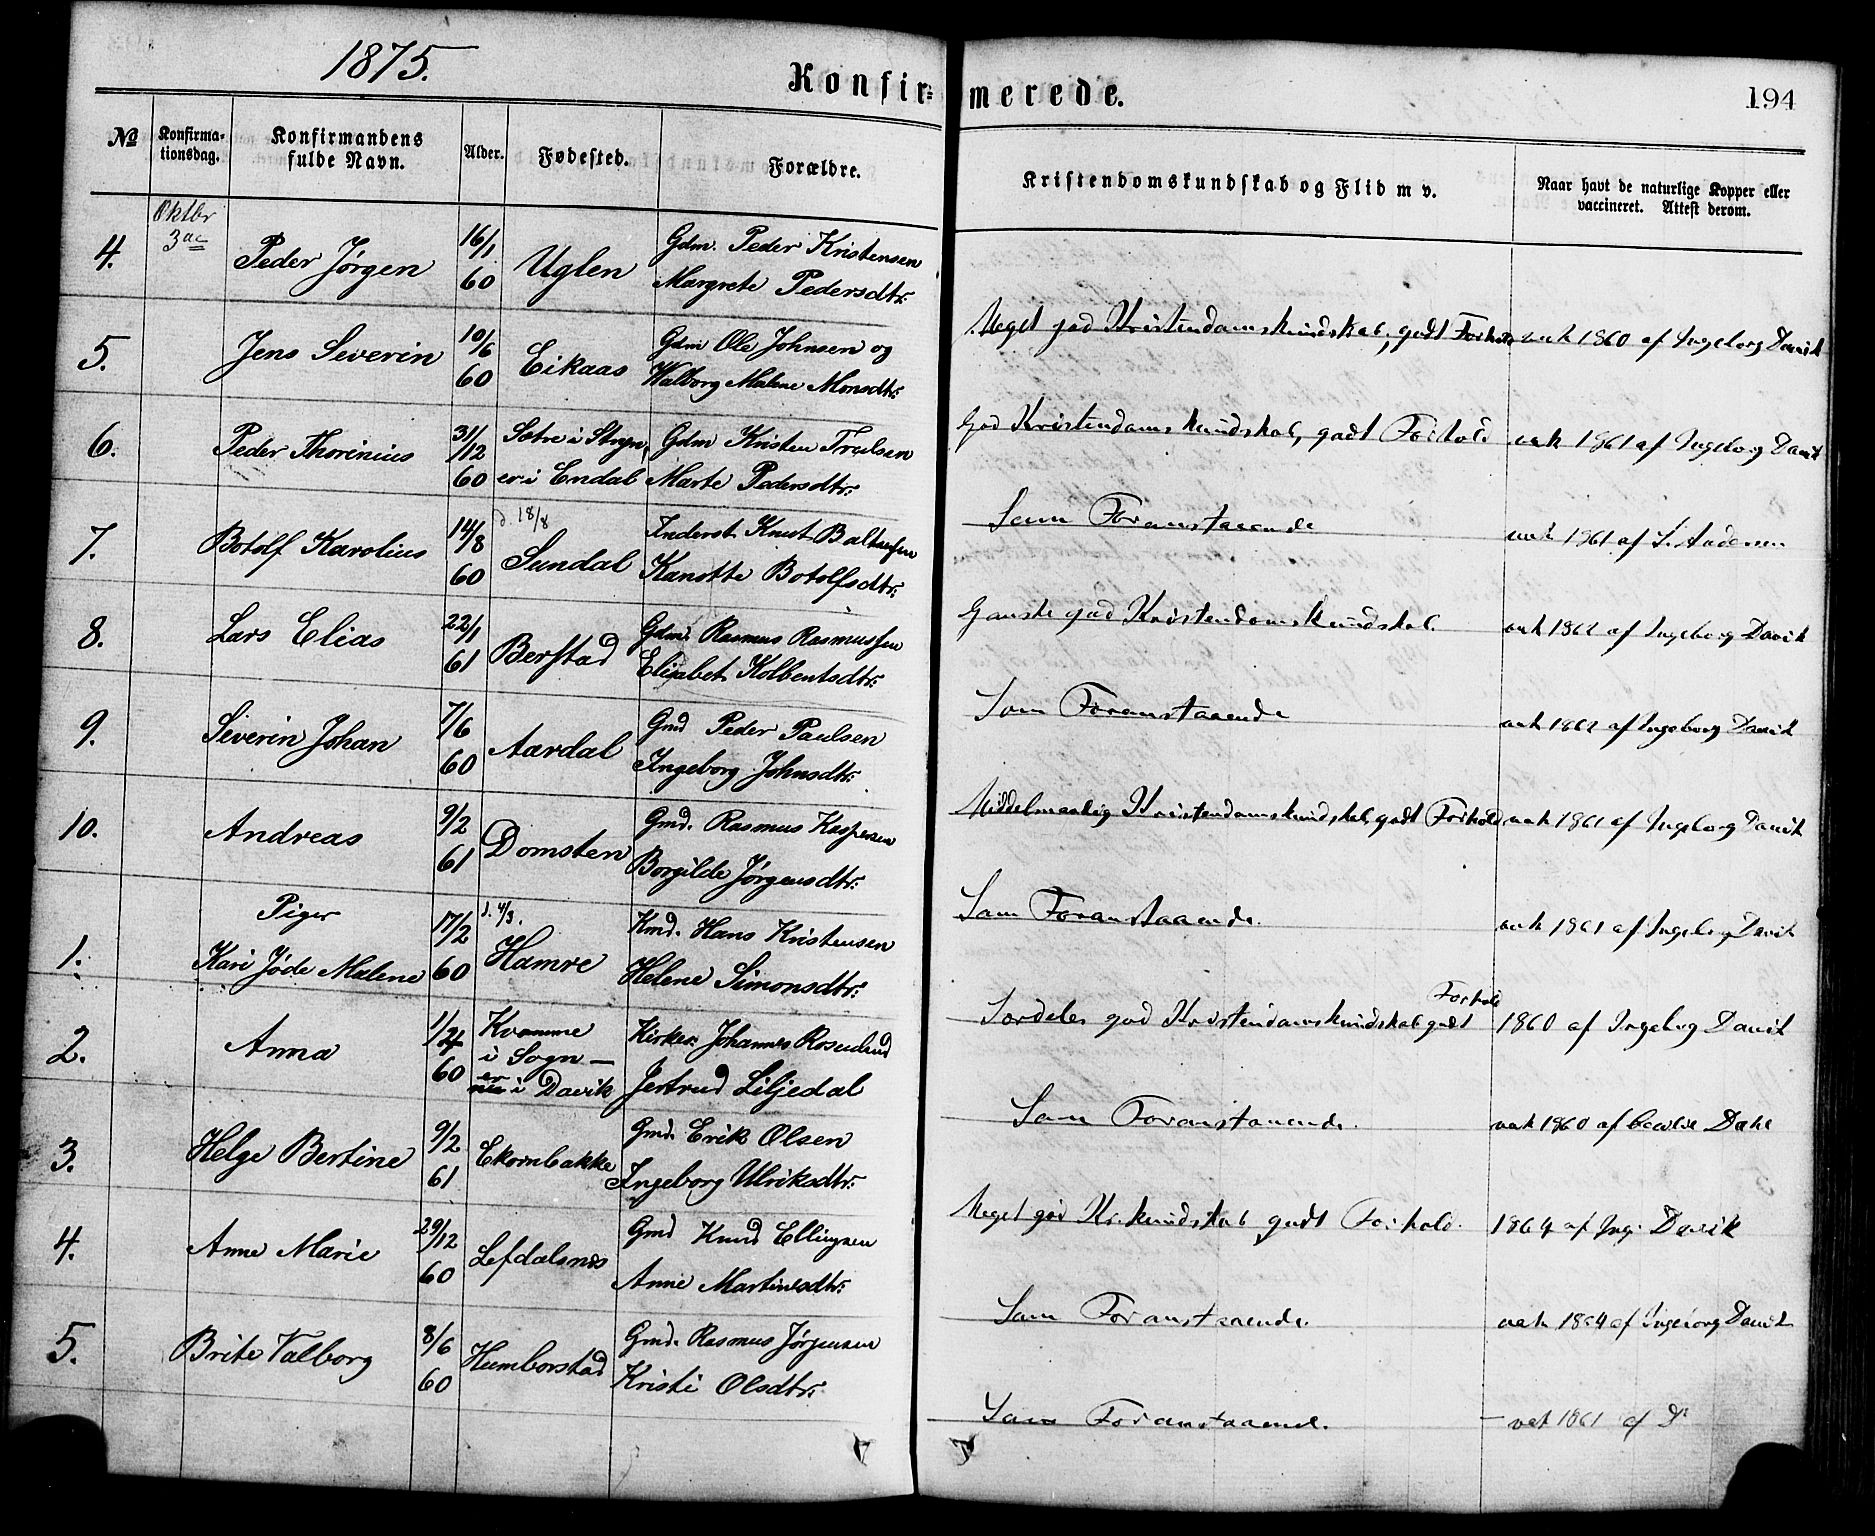 1875.
Konfirmerede.
194
No
Konfirmationsdag.
Konfirmandens fulde Navn.
Alder.
Fødested.
Forældre.
Kristendomskundskab og Flid m v.
Naar havt de naturlige Kopper eller vaccineret. Attest derom.
Oktbr
3die
4. Peder Jørgen 16/1 60 Uglen Gdm. Peder Kristensen
Margrete Pedersdtr.
Meget god Kristendomskundskab, godt Forhold vak 1860 af Ingeborg Davik
5. Jens Severin 10/6 60 Eikaas Gdm Ole Johnsen og
Walborg Malene Monsdtr.
God Kristendomskundskab, godt Forhold vak 1861 af Ingeborg Davik
6. Peder Thorinius 31/12 60 Sætre i Stryn,
er i Endal
Gdm Kristen Troelsen
Marte Pedersdtr.
Som Foranstaaende vak 1861 af S. Andersen
7. Botolf Karolius 14/8 60 d. 18/8
Sundal
Inderst. Knut Baltsersen
Kanutte Botolfsdtr.
Ganske god Kristendomskundskab. vak 1862 af Ingeborg Davik
8. Lars Elias 22/1 61 Berstad Gdm. Rasmus Rasmussen
Elisabet Kolbentsdtr.
Som Foranstaaende vak 1862 af Ingeborg Davik
9. Severin Johan 7/6 60 Aardal Gmd Peder Paulsen
Ingeborg Johnsdtr.
Middelmaadig Kristendomskundskab, godt Forhold vak 1861 af Ingeborg Davik
10. Andreas 9/2 61 Domsten Gmd. Rasmus Kaspersen
Borgilde Jørgensdtr.
Som Foranstaaende. vak 1861 af Ingeborg Davik
Piger
1. Kari Jøde Malene 17/2 60 d. 4/3.
Hamre
Kmd. Hans Kristensen
Helene Simonsdtr.
Særdeles god Kristendomskundskab godt Forhold 1860 af Ingeborg Davik
2. Anna 60 Kvamme
i Sogn —
er i Davik
Kirkes. Johannes Rosenlund
Jertrud Liljedal
Som Foranstaaende. vak 1860 af Dahl
3. Helge Bertine 9/2 61 Ekornbakke Gmd. Erik Olsen
Ingeborg Ulriksdtr.
Meget god Kr. kundskab godt Forhold. 1864 af Ing. Davik
4. Anne Marie 29/12 60 Lefdalsnes Gmd Knud Ellingsen
Anne Martinusdtr.
Som Foranstaaende. vak 1864 af Ingeborg Davik
5. Brite Valborg 8/6 60 Humborstad Gmd. Rasmus Jørgensen
Kristi Olsdtr.
Som Foranstaaende. — vak 1861 af Do